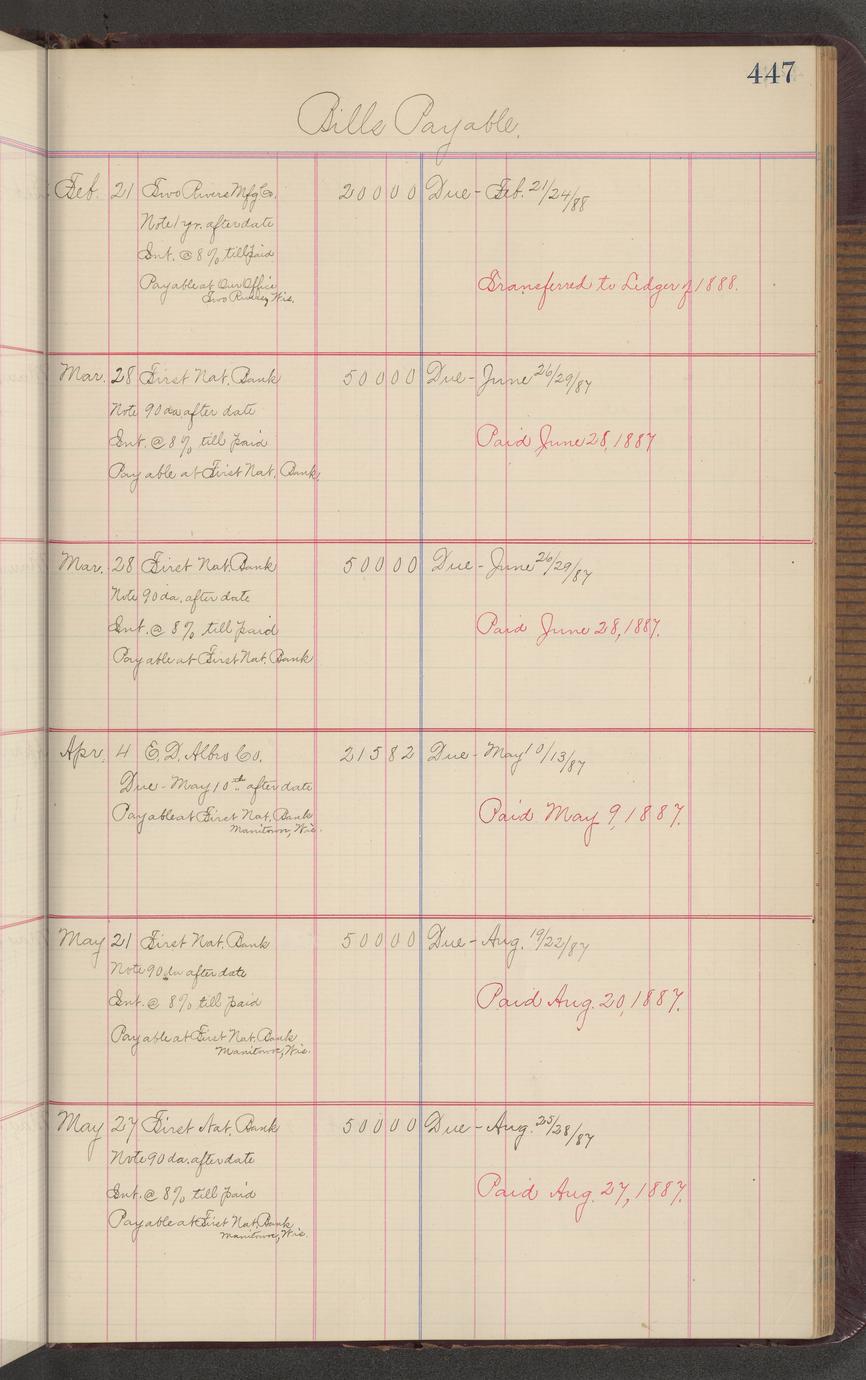 447
Bills Payable.
Feb. 21 Two Rivers Mfg Co. 20000 Due - Feb. 21/24/88
Note 1 yr. after date
Int. @ 8% till paid
Payable at Our Office
Two Rivers, Wis.
Transferred to Ledger of 1888.
Mar. 28 First Nat. Bank 50000 Due - June 26/29/87
Note 90 da after date
Int. @ 8% till paid
Paid June 28, 1887
Payable at First Nat. Bank,
Mar. 28 First Nat. Bank 50000 Due - June 26/29/87
Note 90 da. after date
Int. @ 8% till paid
Paid June 28, 1887.
Payable at First Nat. Bank
Apr. 4 E. D. Albro Co. 21582 Due - May 10/13/87
Due - May 10th after date
Payable at First Nat. Bank
Manitowoc, Wis.
Paid May 9, 1887.
May 21 First Nat. Bank 50000 Due - Aug. 19/22/87
Note 90 da after date
Int. @ 8% till paid
Paid Aug. 20, 1887.
Payable at First Nat. Bank
Manitowoc, Wis.
May 27 First Nat. Bank 50000 Due - Aug. 25/28/87
Note 90 da. after date
Int. @ 8% till paid
Paid Aug. 27, 1887.
Payable at First Nat. Bank
Manitowoc, Wis.